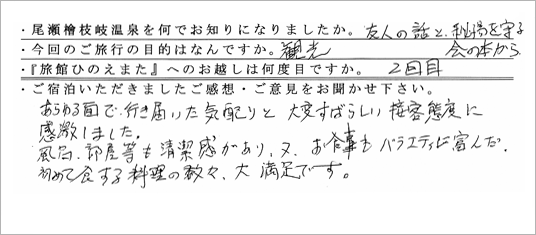 ・尾瀬檜枝岐温泉を何でお知りになりましたか。 友人の話と、秘湯を守る
・今回のご旅行の目的はなんですか。 観光 会の本から
・『旅館ひのえまた』へのお越しは何度目ですか。 2回目
・ご宿泊いただきましたご感想・ご意見をお聞かせ下さい。
あらゆる面で行き届いた気配りと大変すばらしい接客態度に
感激しました。
風呂、部屋等も清潔感があり、又、お食事もバラエティに富んだ、
初めて食する料理の数々、大満足です。